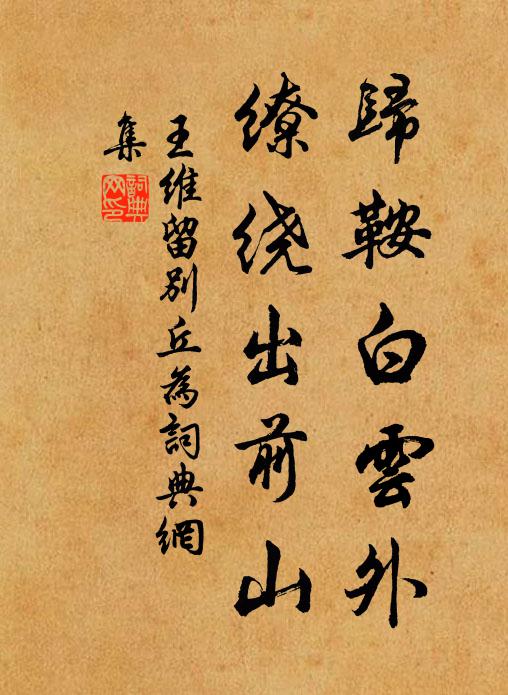 歸鞍白雲外
繚绕出前山
王維留别丘為詞典網
集
詞典
网印